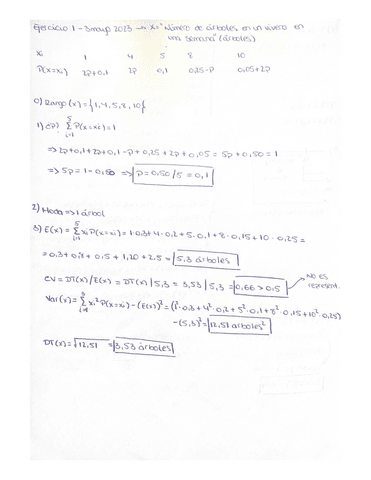 Ejercicio 1 - 3 mayo 2023 → X="Número de árboles en un vivero en
una semana" (árboles)
xi 1 4 5 8 10
P(x=xi) 2p+0,1 2p 0,1 0,25-p 0,05+2p
0) Rango (x) = {1,4,5,8,10}
1) ¿P? 5 Σ i=1 P(x=xi)=1
=> 2p+0,1+2p+0,1-p+0,25+2p+0,05 = 5p+0,50 = 1
=> 5p = 1-0,50 => p=0,50/5 = 0,1
2) Moda => 1 árbol
3) E(x) = 5 Σ i=1 xi P(x=xi) = 1·0,3+4·0,2+5·0,1+8·0,15+10·0,25 =
= 0,3+0,8+0,5+1,20+2,5 = 5,3 árboles
CV = DT(x)/E(x) = DT(x)/5,3 = 3,53/5,3 = 0,66 > 0,5 → NO ES
represent.
Var(x) = 5 Σ i=1 xi² P(x=xi) - (E(x))² = (1²·0,3+4²·0,2+5²·0,1+8²·0,15+10²·0,25)
-(5,3)² = 12,51 árboles²
DT(x) = √12,51 = 3,53 árboles